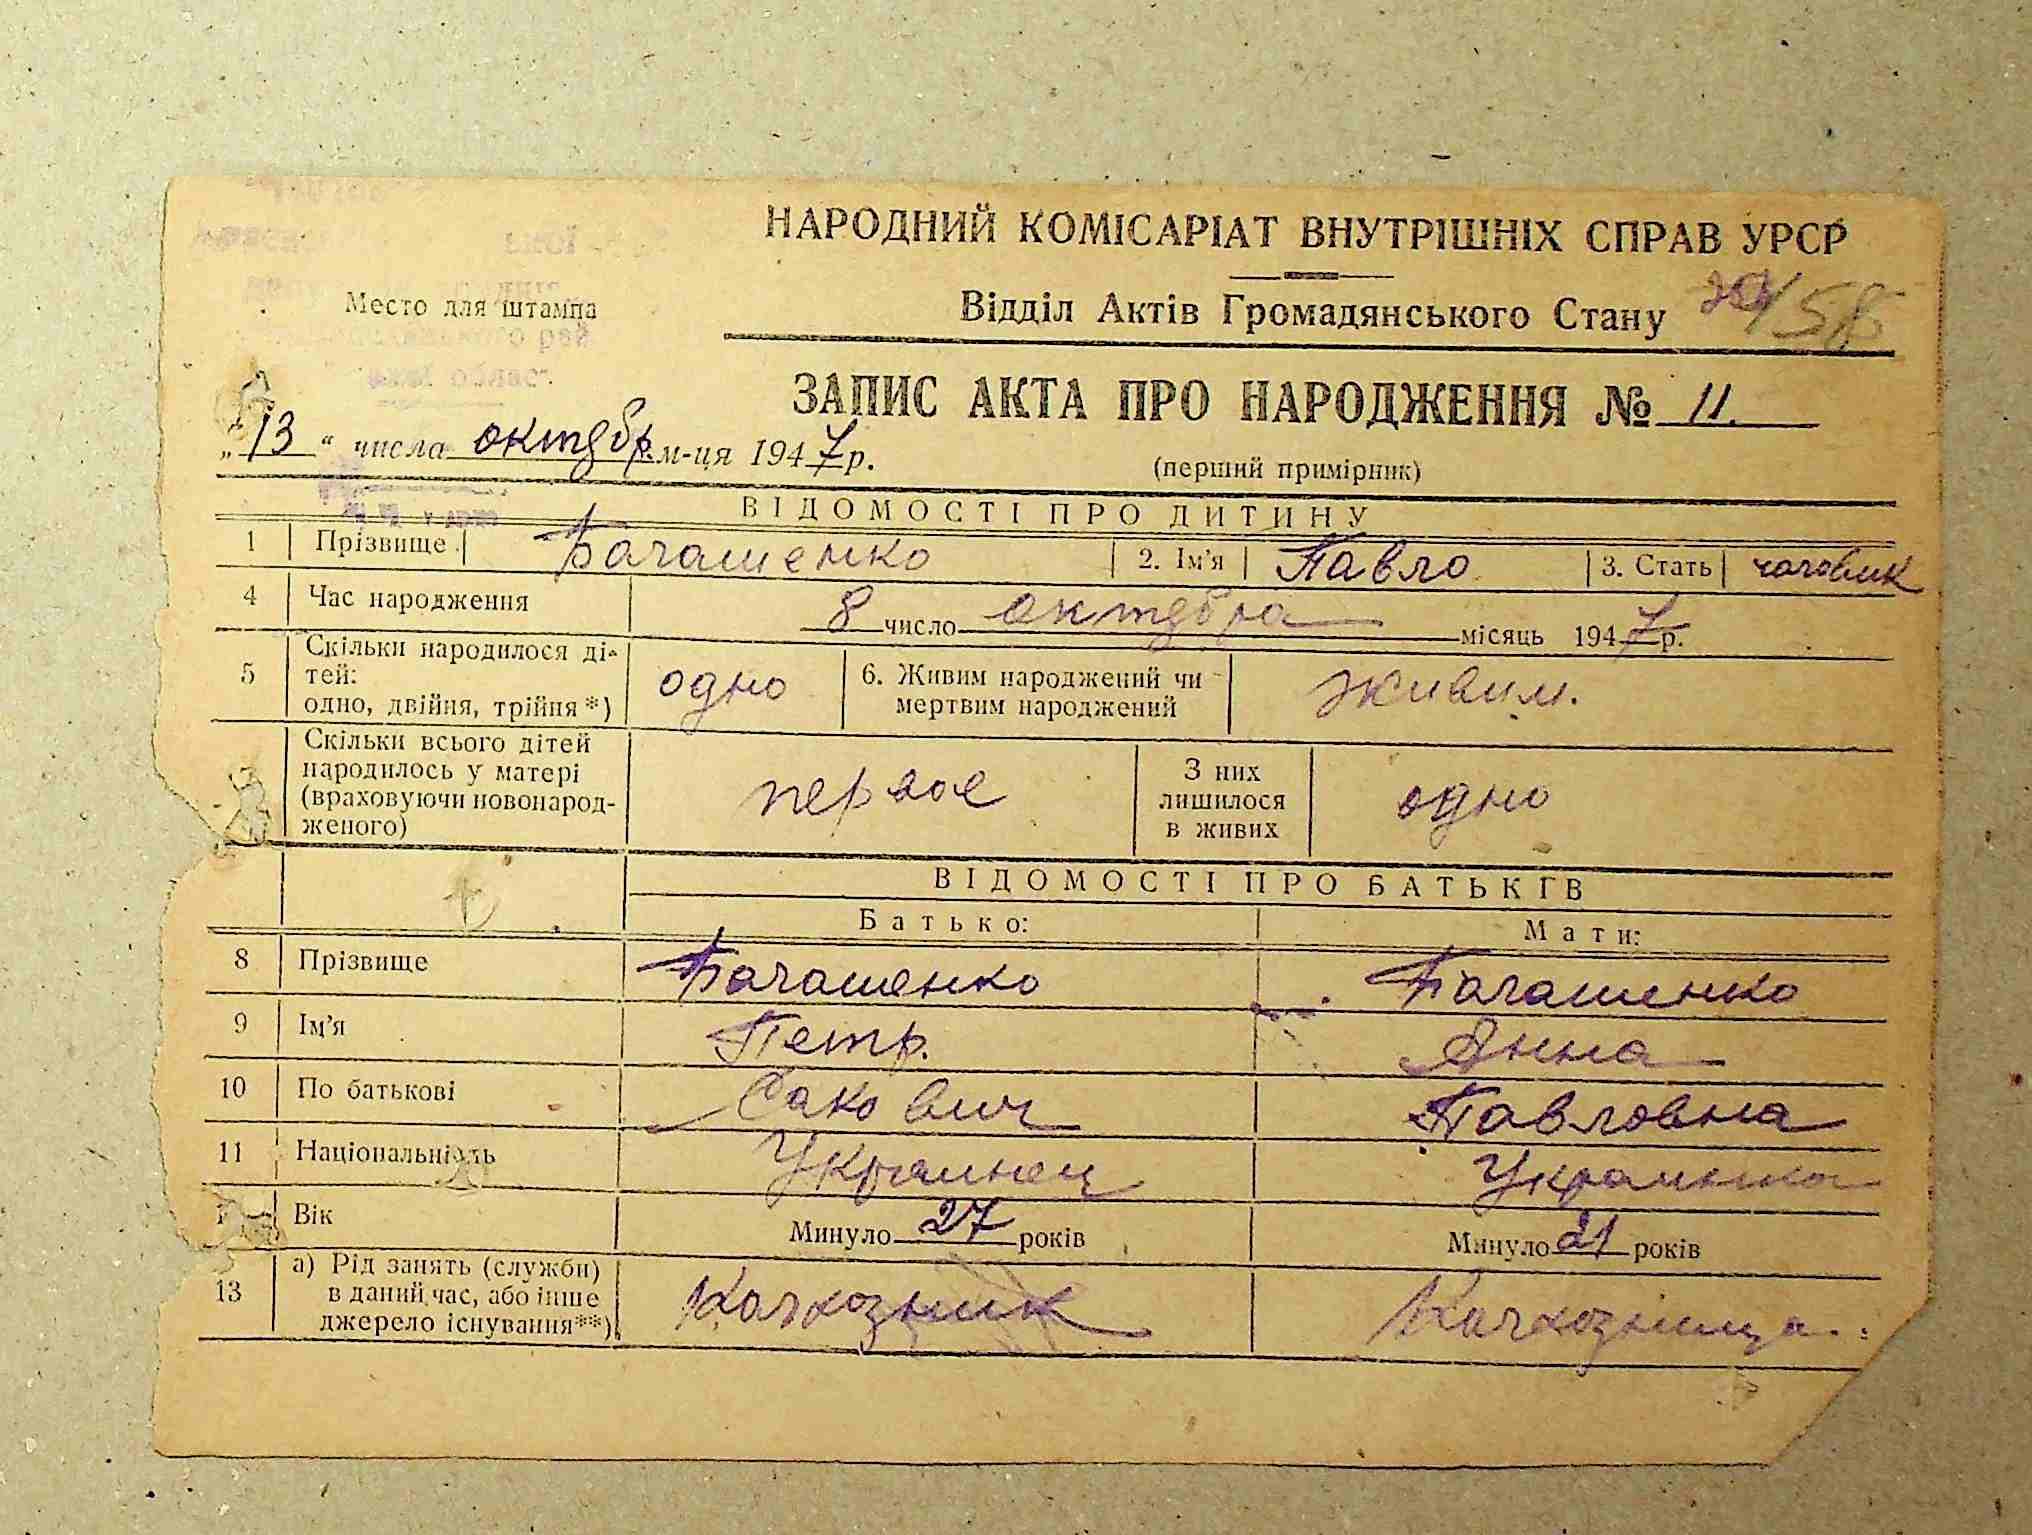 НАРОДНИЙ КОМІСАРІАТ ВНУТРІШНІХ СПРАВ УРСР
Место для штампа
Відділ Актів Громадянського Стану
58
ЗАПИС АКТА ПРО НАРОДЖЕННЯ № 11.
„13“ числа октябр. м-ця 1947 р.
(перший примірник)
ВІДОМОСТІ ПРО ДИТИНУ
1 Прізвище Багашенко 2. Ім'я Павло 3. Стать
4 Час народження 8 число октября місяць 1947 р.
5 Скільки народилося ді-
тей:
одно, двійня, трійня*) одно 6. Живим народжений чи
мертвим народжений живим.
Скільки всього дітей
народилось у матері
(враховуючи новонарод-
женого) первое З них
лишилося
в живих одно
ВІДОМОСТІ ПРО БАТЬКІВ
Батько: Мати:
8 Прізвище Багашенко Багашенко
9 Ім'я Петр. Анна
10 По батькові Сакович Павловна
11 Національність Украинец Украинка
Вік Минуло 27 років Минуло 21 років
13 а) Рід занять (служби)
в даний час, або інше
джерело існування**) Колхозник Колхозница.